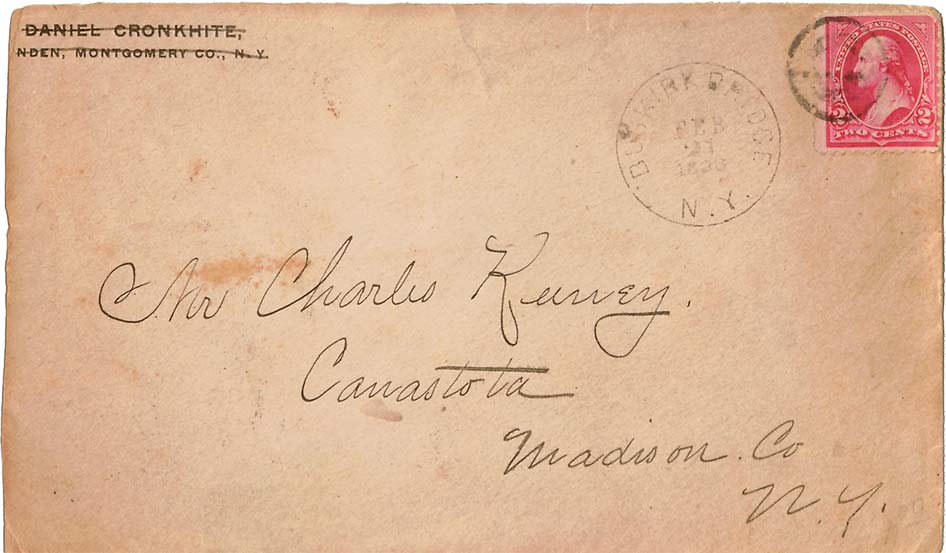 DANIEL CRONKHITE,
NDEN, MONTGOMERY CO., N. Y.
BUSKIRK BRIDGE
FEB
21
N.Y.
UNITED STATES POSTAGE
2 2
TWO CENTS
Mr Charles Keeney.
Canastota
Madison Co
N.Y.